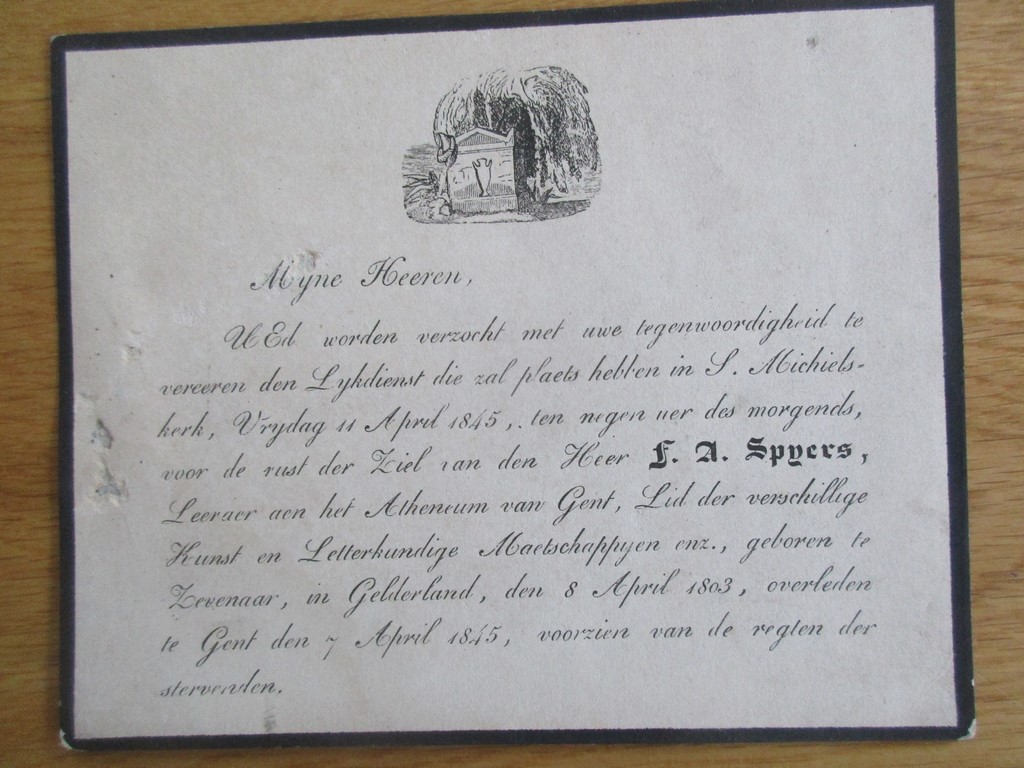 Myne Heeren,
UEd worden verzocht met uwe tegenwoordigheid te
vereeren den Lykdienst die zal plaets hebben in S. Michiels-
kerk, Vrydag 11 April 1845, ten negen uer des morgends,
voor de rust der Ziel van den Heer F. A. Spyers,
Leeraer aen het Atheneum van Gent, Lid der verschillige
Kunst en Letterkundige Maetschappyen enz., geboren te
Zevenaar, in Gelderland, den 8 April 1803, overleden
te Gent den 7 April 1845, voorzien van de regten der
stervenden.